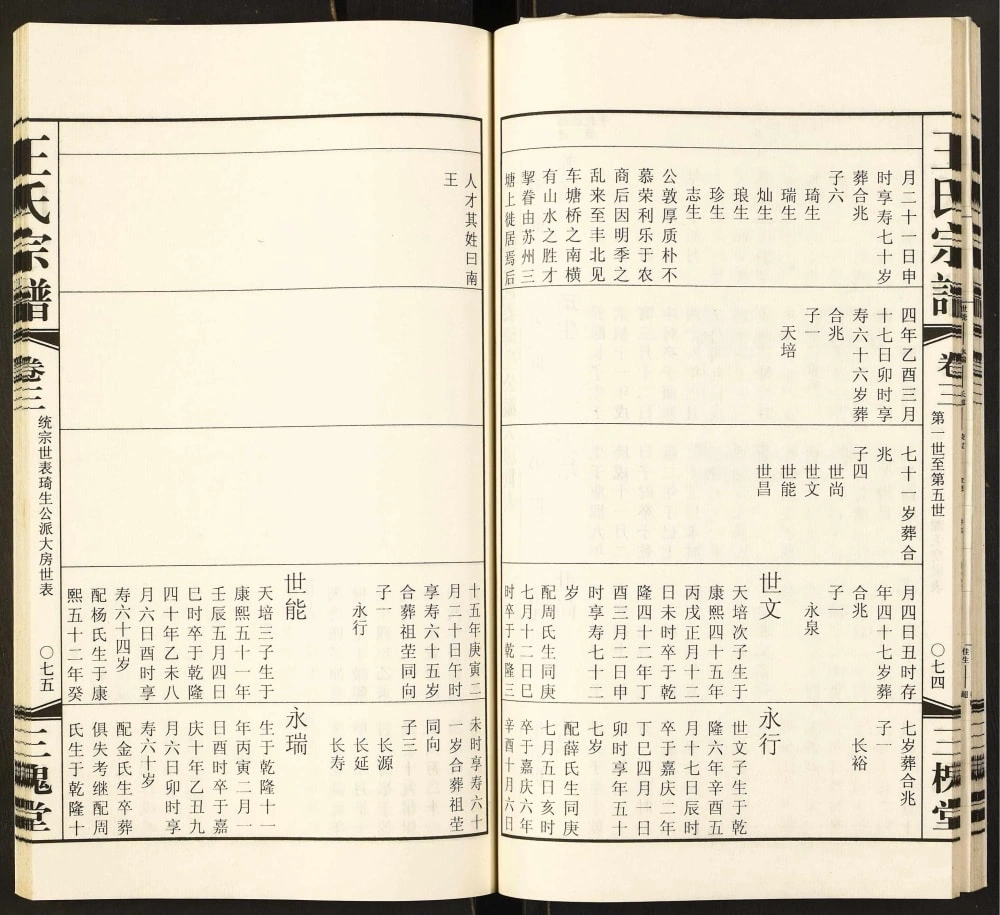 王氏宗谱
卷三
第一世至第五世
〇七四
三槐堂
月二十一日申
时享寿七十岁
葬合兆
子六
琦生
瑞生
灿生
琅生
珍生
志生
公敦厚质朴不
慕荣利乐于农
商后因明季之
乱来至丰北见
车塘桥之南横
有山水之胜才
挈眷由苏州三
塘上徙居焉后
四年乙酉三月
十七日卯时享
寿六十六岁葬
合兆
子一
天培
七十一岁葬合
兆
子四
世尚
世文
世能
世昌
月四日丑时存
年四十七岁葬
合兆
子一
永泉
世文
天培次子生于
康熙四十五年
丙戌正月十二
日未时卒于乾
隆四十二年丁
酉三月二日申
时享寿七十二
岁
配周氏生同庚
七月二十二日巳
时卒于乾隆三
七岁葬合兆
子一
长裕
永行
世文子生于乾
隆六年辛酉五
月十七日辰时
卒于嘉庆二年
丁巳四月一日
卯时享年五十
七岁
配薛氏生同庚
七月五日亥时
卒于嘉庆六年
辛酉十月六日
人才其姓曰南
王
十五年庚寅二
月二十日午时
享寿六十五岁
合葬祖茔同向
子一
永行
世能
天培三子生于
康熙五十一年
壬辰五月四日
巳时卒于乾隆
四十年乙未八
月六日酉时享
寿六十四岁
配杨氏生于康
熙五十二年癸
未时享寿六十
一岁合葬祖茔
同向
子三
长源
长延
长寿
永瑞
生于乾隆十一
年丙寅二月一
日酉时卒于嘉
庆十年乙丑九
月六日卯时享
寿六十岁
配金氏生卒葬
俱失考继配周
氏生于乾隆十
王氏宗谱
卷三
统宗世表琦生公派大房世表
〇七五
三槐堂